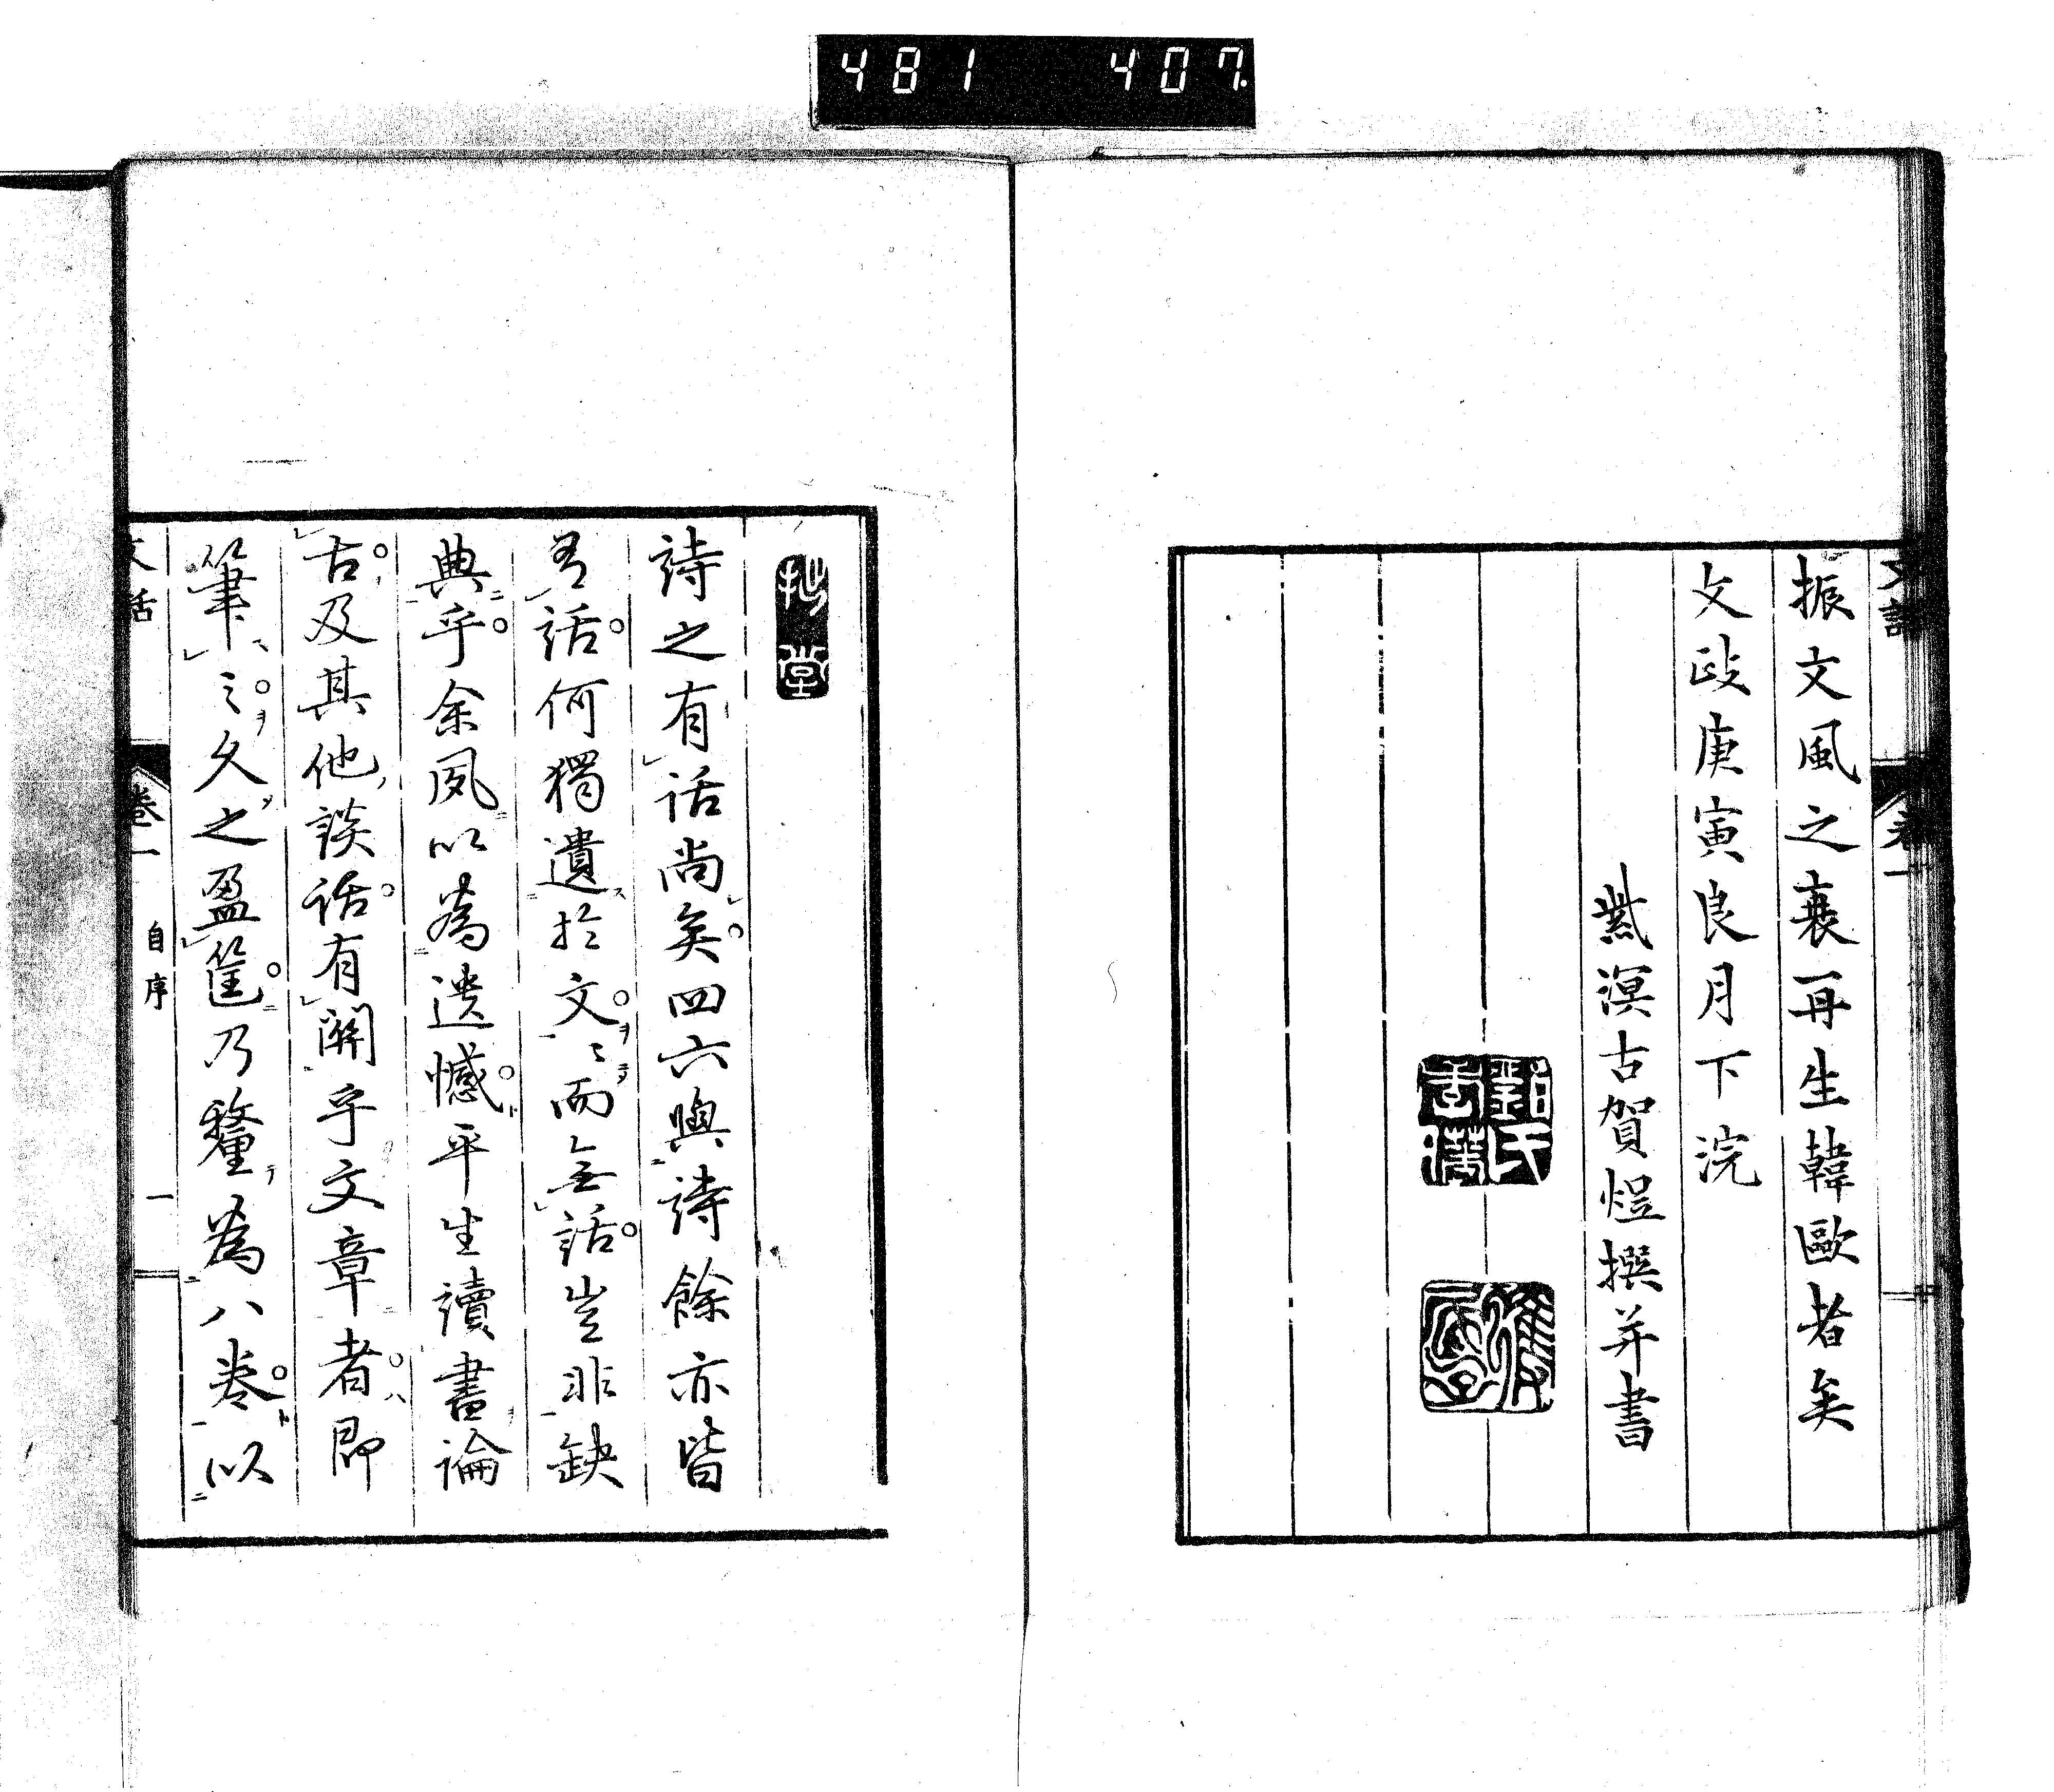 481 407
文話 卷一
振文風之衰再生韓歐者矣
文政庚寅良月下浣
紫溟古賀煜撰并書
拙堂
詩之有話尚矣四六與詩餘亦皆
有話何獨遺於文〻而無話豈非缺
典乎余夙以為遺憾平生讀書論
古及其他談話有關乎文章者即
筆〻之久之盈筐乃釐為八卷以
文話 卷一 自序 一